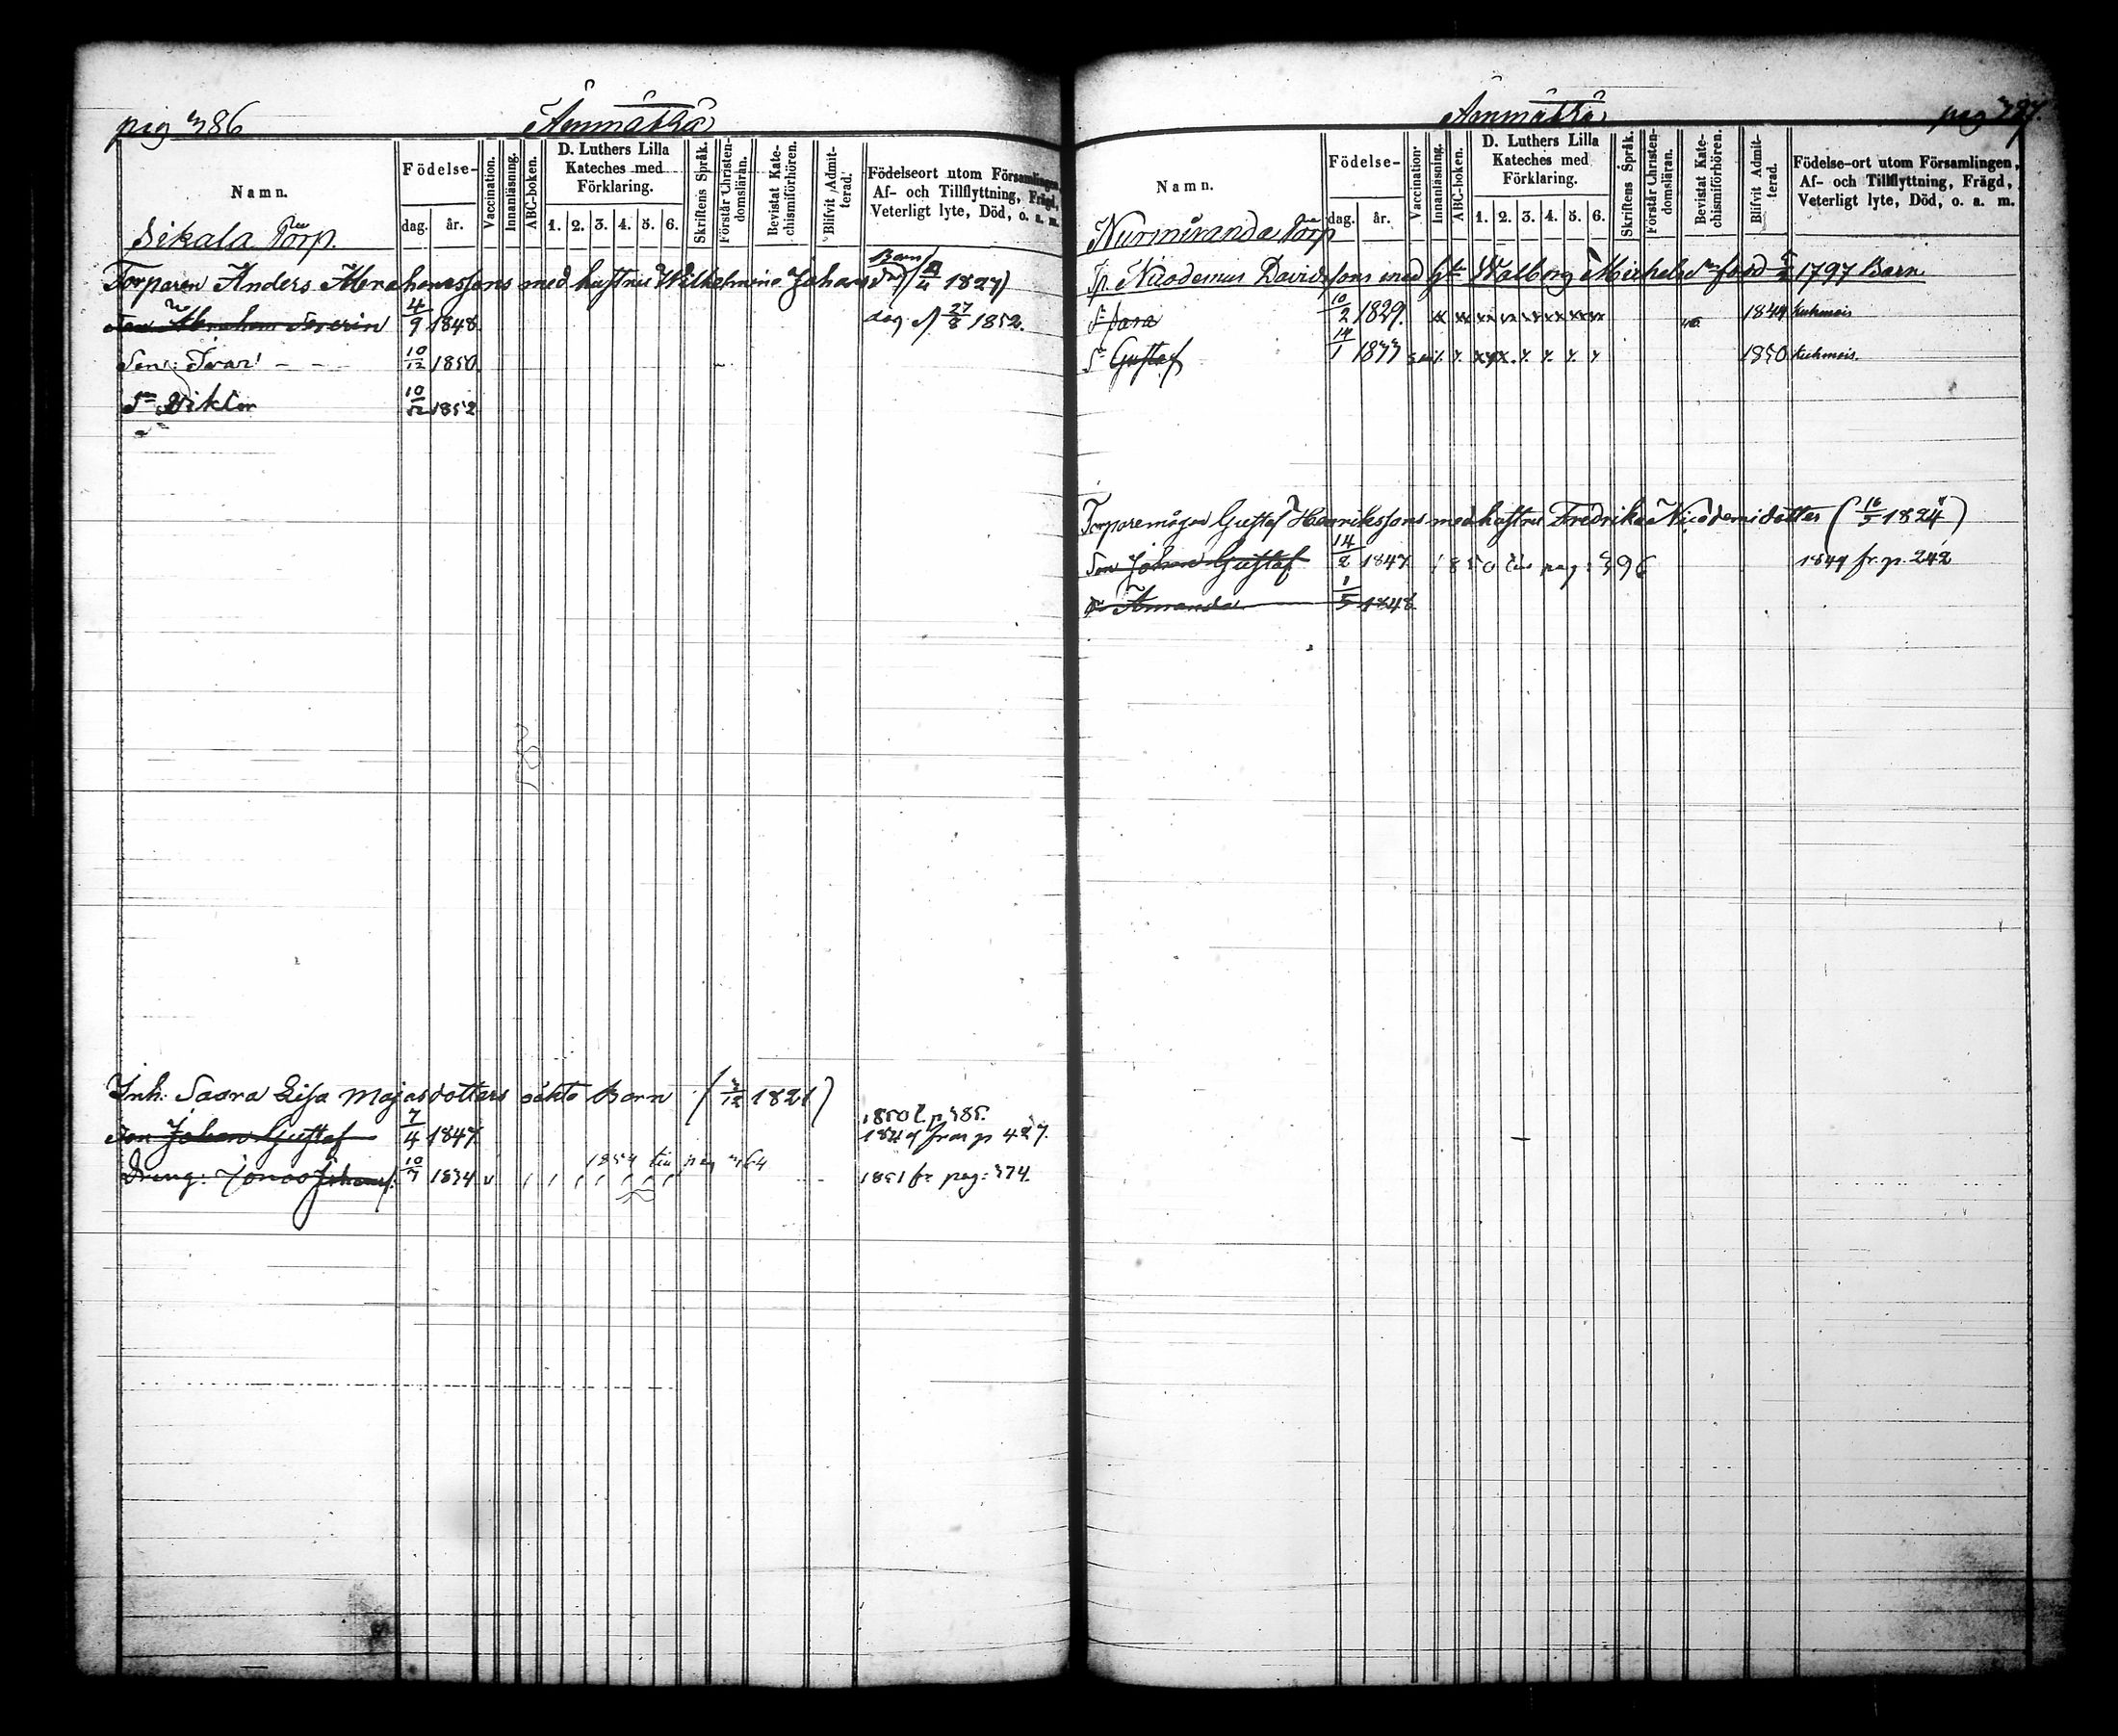 pag 386
Ämmätsä
Namn.
Födelse-
dag.
år.
Vaccination.
Innanläsning.
ABC-boken.
D. Luthers Lilla
Kateches med
Förklaring.
1. 2. 3. 4. 5. 6.
Skriftens Språk.
Förstår Christen-
domsläran.
Bevistat Kate-
chismiförhören.
Blifvit Admit-
terad.
Födelseort utom Församlingen,
Af- och Tillflyttning, Frägd,
Veterligt lyte, Död, o. a. m.
Sikala Torp.
Torparen Anders Abrahamssons med hustrus Wilhelmina Johans dr Barn 1827)
Son Abraham Severin 4/9 1848. dog d 27/8 1852.
Son: Ivar 10/12 1850.
Sn Viktor 10/12 1852
Inh. Saara Lisa Majasdotters oäkta Barn (3/12 1821)
1850 t. p 385.
Son Johan Gustaf 7/4 1847 1849 från p 427.
1854 till pag 364
Dreng: Jonas Johanss. 10/7 1834 1851 fr pag: 374.
Ämmätsä
pag 387.
Namn.
Födelse-
dag.
år.
Vaccination.
Innanläsning.
ABC-boken.
D. Luthers Lilla
Kateches med
Förklaring.
1. 2. 3. 4. 5. 6.
Skriftens Språk.
Förstår Christen-
domsläran.
Bevistat Kate-
chismiförhören.
Blifvit Admit-
terad.
Födelse-ort utom Församlingen,
Af- och Tillflyttning, Frägd,
Veterligt lyte, Död, o. a. m.
Nurmiranda Torp
Tp. Nicodemus Davidssons med Walborg Michels dr född 1797 Barn
Sara 10/2 1829. 1849 Kuhmois
Sn Gustaf 14/1 1833 1850 Kuhmois.
Torparemågen Gustaf Henrikssons med hustrus Fredrika Nicodemidotter (16/5 1824)
Son Johan Gustaf 14/2 1847 1850 till pag: 396 1849 fr. p. 242
Amanda 1/5 1848